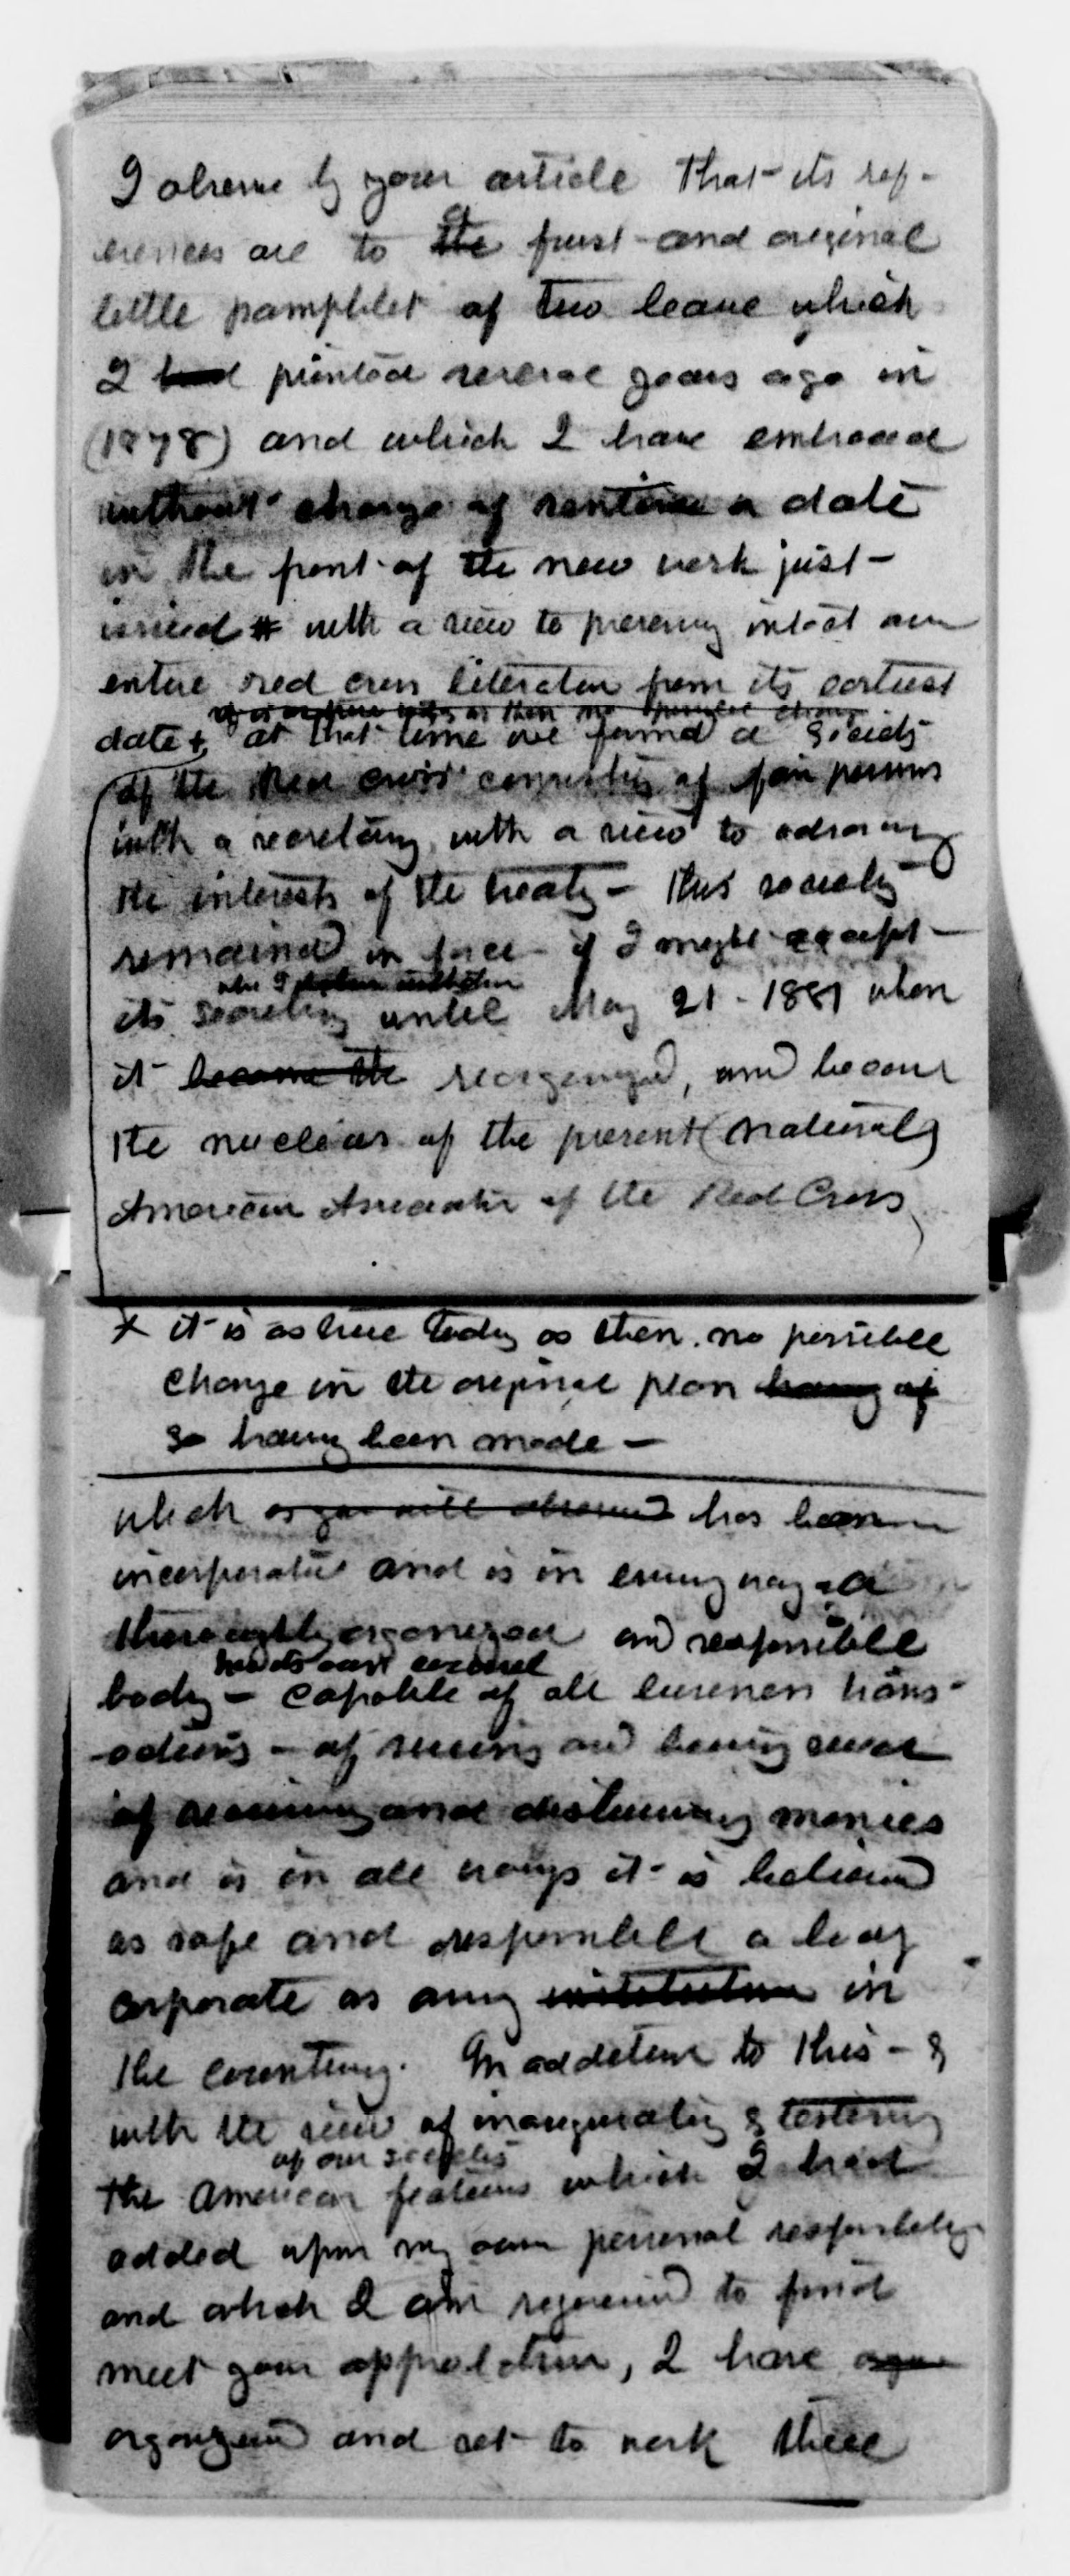 I observe by your article that its ref-
erences are to the first and original
little pamphlet of two leave which
I had printed several years ago in
(1878) and which I have embraced
without change of sentence or date
in the front of the new work just
issued # with a view to preserving intact our
entire red cross literature from its earliest
it is as true today as then no possible change
date + at that time we formed a society
of the Red Cross consisting of four persons
with a secretary, with a view to advancing
the interests of the treaty - this society
remained in force - if I might except -
its secretary until May 21 - 1881 when
it became the reorganized, and became
the nucleus of the present (national)
American Association of the Red Cross
+ it is as true today as then. no possible
change in the original plan having of
so having been made -
which as you will observe has been
incorporated and is in every way a
thoroughly organized and responsible
body - capable of all business trans-
actions - of sueing and being sued
of receiving and disbursing monies
and is in all ways it is believed
as safe and responsible a body
corporate as any institution in
the country. In addition to this - &
with the view of inaugurating & testing
of our societies
the American features which I had
added upon my own personal responsibility
and which I am rejoiced to find
meet your approbation, I have
organized and set to work three